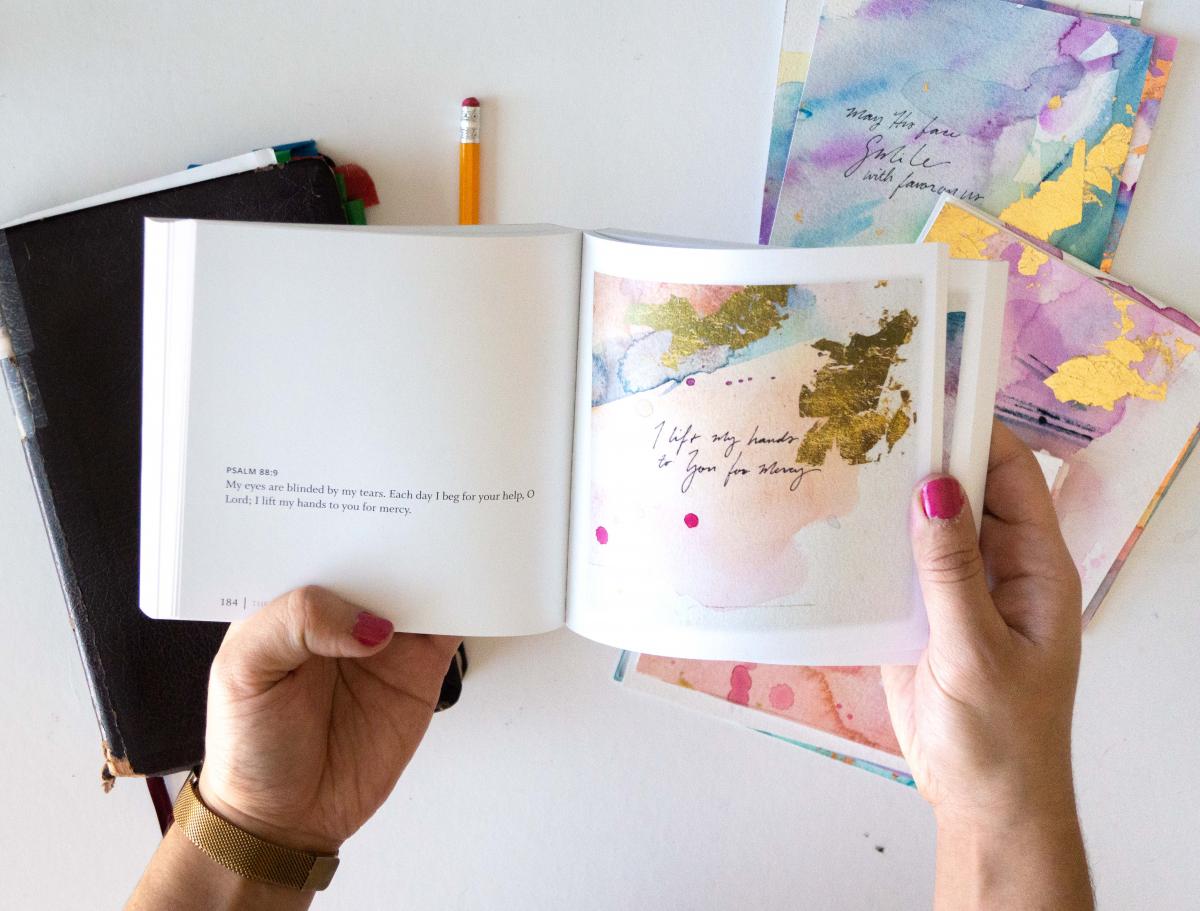 may His face
smile
with favor on us
PSALM 88:9
My eyes are blinded by my tears. Each day I beg for your help, O
Lord; I lift my hands to you for mercy.
184 |
I lift my hands
to You for mercy